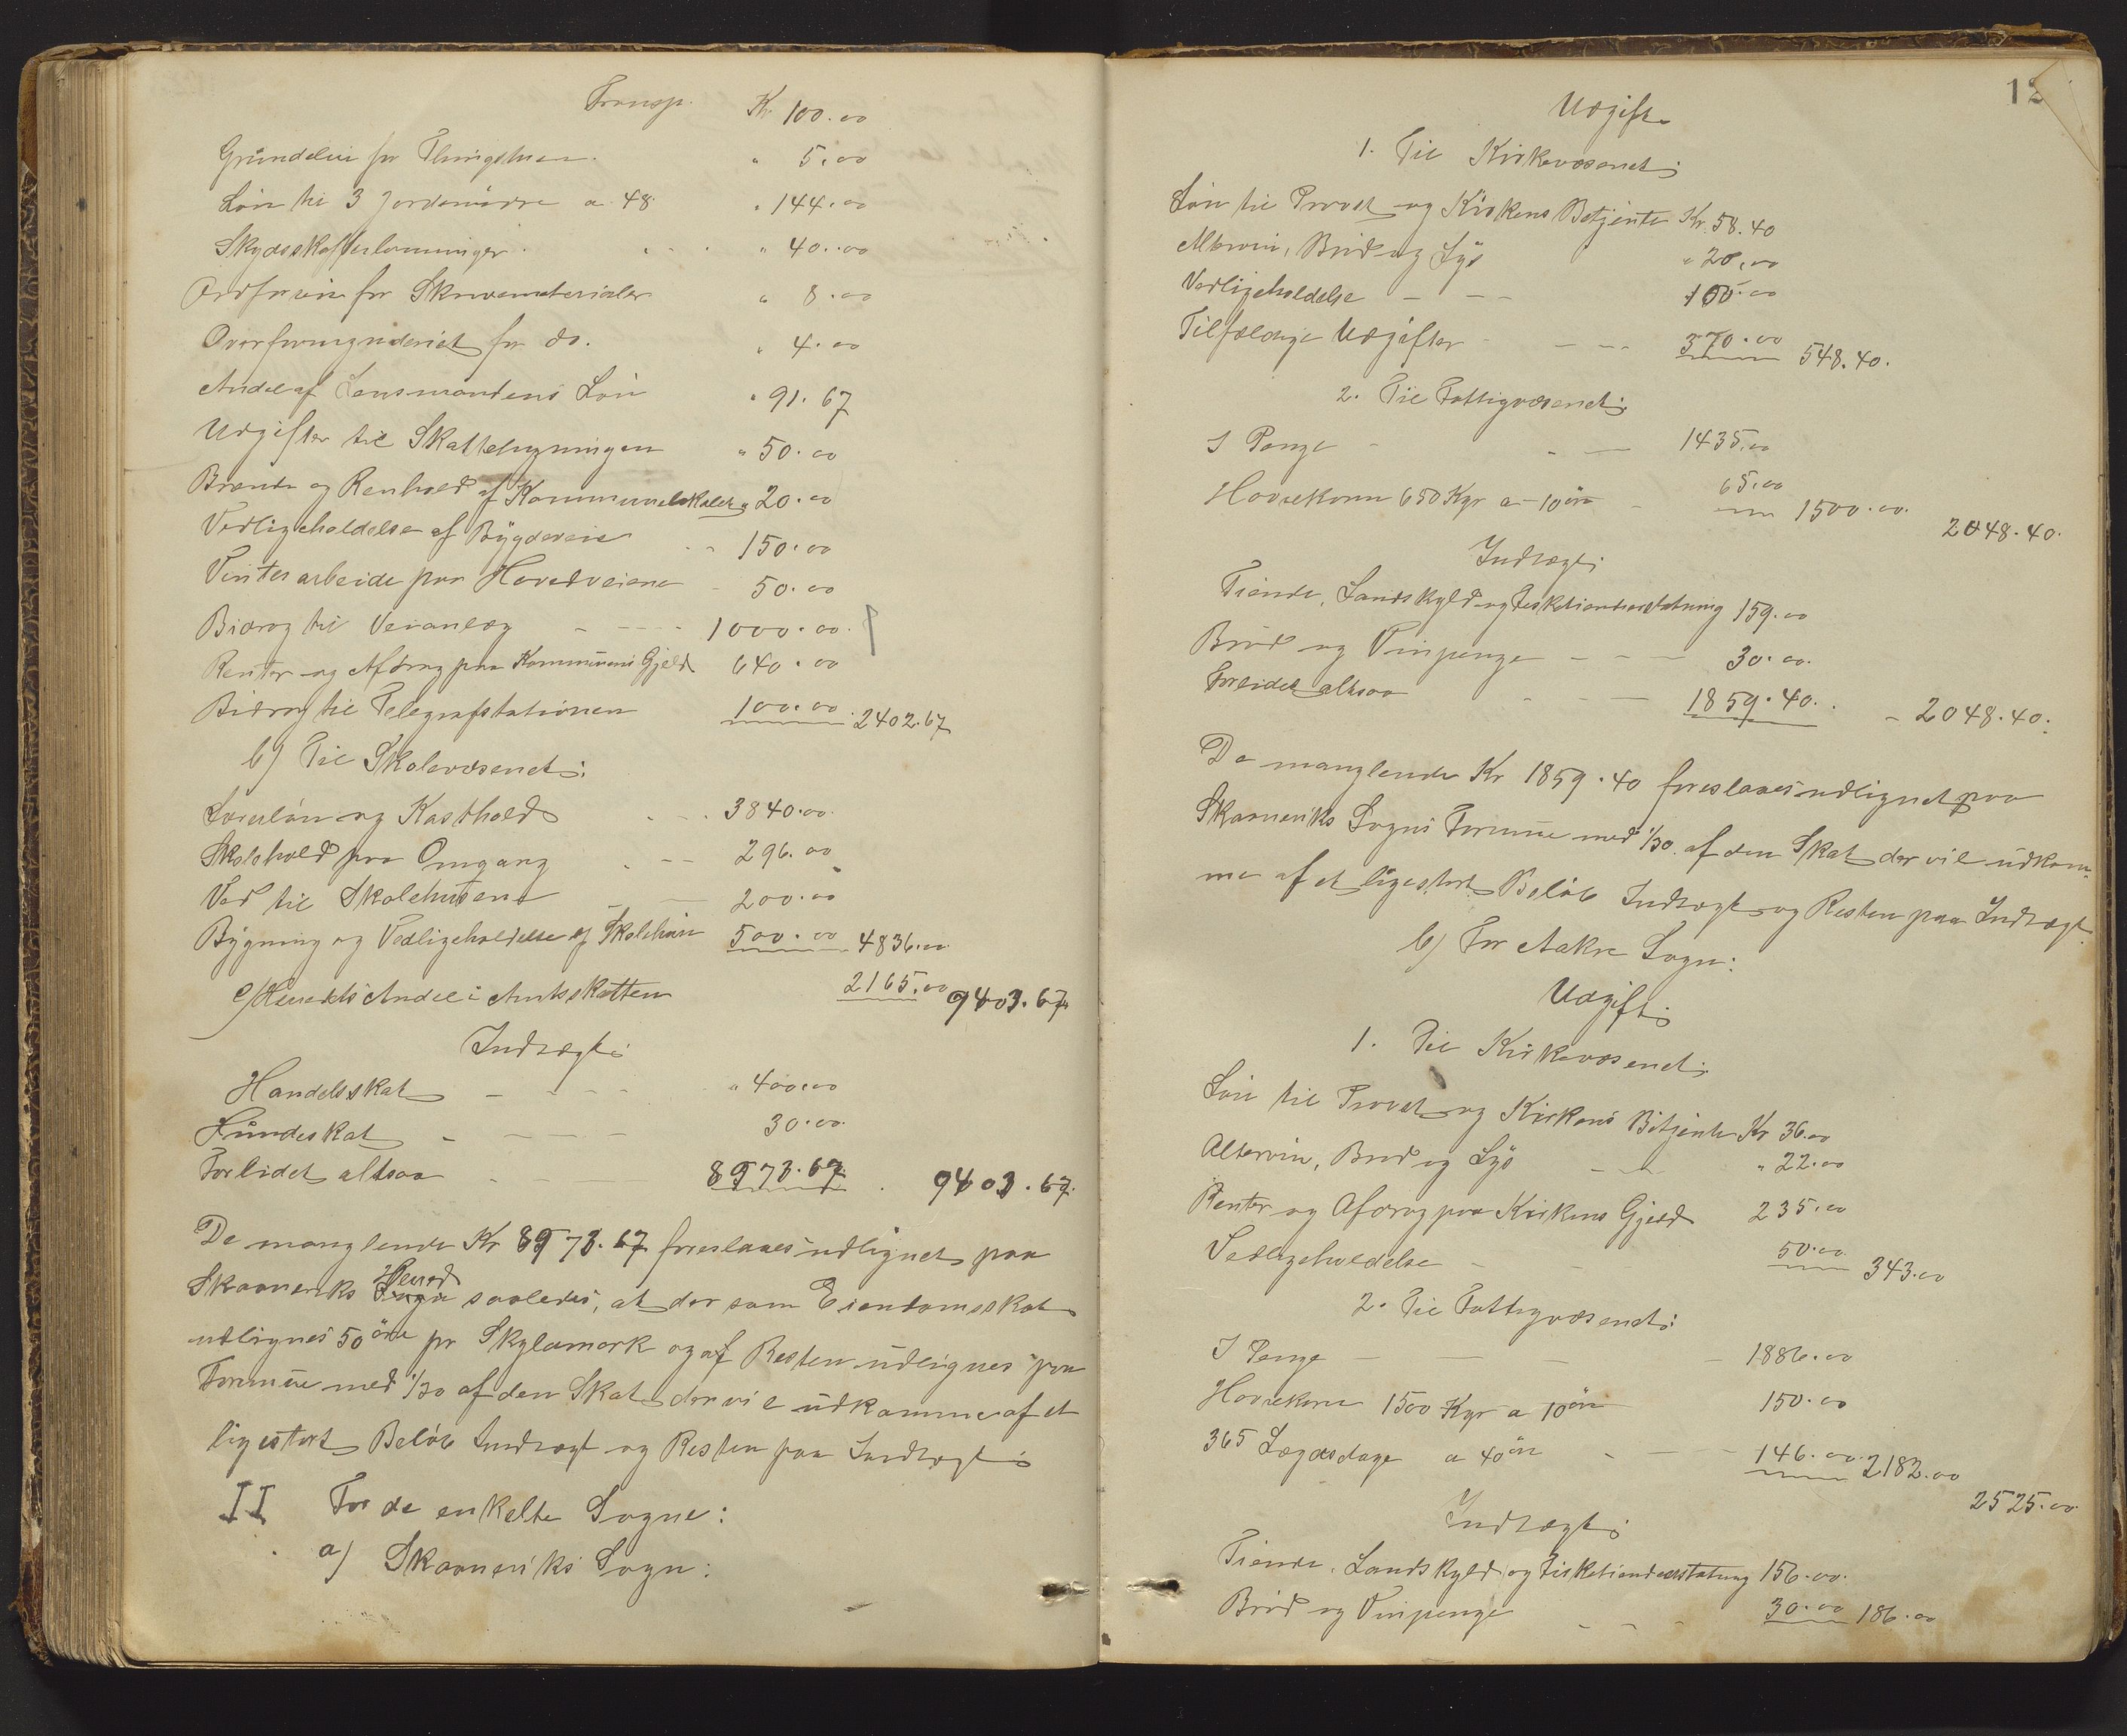 Transp. Kr 100.00
Grundleie for Thingstuen. " 5.00
Løn til 3 Jordemødre a 48 " 144.00
Skydsskafferlønninger . " 40.00
Ordføreren for Skrivematerialer " 8.00
Overformynderiet for do. " 4.00
Andel af Lensmandens Løn " 91.67
Udgifter til Skatteligningen " 50.00
Brænde og Renhold af Kommunelokaler " 20.00
Vedligeholdelse af Bygdeveie 150.00
Vinterarbeide paa Hovedveiene 50.00
Bidrag til Veianlæg 1000.00
Renter og Afdrag paa Kommunens Gjeld 640.00
Bidrag til Telegrafstationen 100.00 2402.67
b) Til Skolevæsenet:
Lærerløn og Kosthold 3840.00
Skolehold paa Omgang 296.00
Ved til Skolehusene 200.00
Bygning og Vedligeholdelse af Skolehuse 500.00 4836.00
c) Herredets Andel i Amtsskatten 2165.00 9403.67
Indtægt:
Handelsskat " 400.00
Hundeskat 30.00
Forlidet altsaa 8973.67 9403.67
De manglende Kr 8973.67 foreslaaes udlignet paa
Skaanevigs Herred saaledes, at der som Eiendomsskat
udlignes 50 øre pr Skyldmark og af Resten udlignes paa
Formue med 1/30 af den Skat der vil udkomme af et
ligestort Beløb Indtægt og Resten paa Indtægt:
II For de enkelte Sogne:
a) Skaaneviks Sogn:
12
Udgift.
1. Til Kirkevæsenet:
Løn til Provst og Kirkens Betjente Kr. 58.40
Altervin, Brød og Lys " 20.00
Vedligeholdelse 100.00
Tilfældige Udgifter 370.00 548.40.
2. Til Fattigvæsenet:
I Penge 1435.00
Havrekorn 650 Kgr a 10 øre 65.00 1500.00. 2048.40.
Indtægt:
Tiende, Landskyld og Fisketiendeerstatning 159.00
Brød og Vinpenge 30.00.
Forlidet altsaa 1859.40. 2048.40.
De manglende Kr 1859.40 foreslaaes udlignet paa
Skaaneviks Sogns Formue med 1/30 af den Skat der vil udkom-
me af et ligestort Beløb Indtægt og Resten paa Indtægt.
b) For Aakre Sogn:
Udgift:
1. Til Kirkevæsenet:
Løn til Provst og Kirkens Betjente Kr 36.00
Altervin, Brød og Lys " 22.00
Renter og Afdrag paa Kirkens Gjeld 235.00
Vedligeholdelse 50.00 343.00
2. Til Fattigvæsenet:
I Penge 1886.00
Havrekorn 1500 Kgr a 10 øre 150.00
365 Lægdsdage a 40 øre 146.00. 2182.00
2525.00
Indtægt:
Tiende, Landskyld og Fisketiendeerstatning 156.00.
Brød og Vinpenge 30.00 186.00